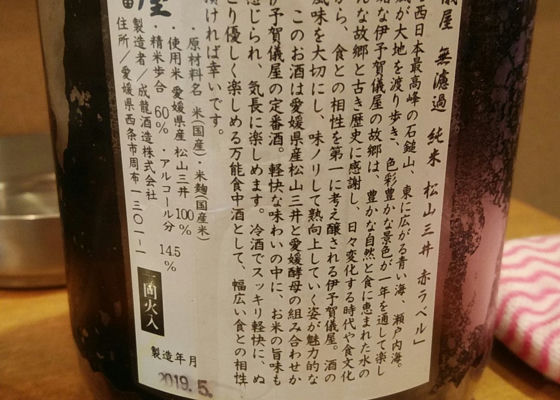 儀屋 無濾過 純米 松山三井 赤ラベル」
西日本最高峰の石鎚山、東に広がる青い海、瀬戸内海。
が大地を渡り歩き、色彩豊かな景色が一年を通して楽し
な伊予賀儀屋の故郷は、豊かな自然と食に恵まれた水の
んな故郷と古き歴史に感謝し、日々変化する時代や食文化
から、食との相性を第一に考え醸される伊予賀儀屋。酒の
風味を大切にし、味ノリして熟向上していく姿が魅力的な
このお酒は愛媛県産松山三井と愛媛酵母の組み合わせか
伊予賀儀屋の定番酒。軽快な味わいの中に、お米の旨味も
感じられ、気長に楽しめます。冷酒でスッキリ軽快に、ぬ
り優しく楽しめる万能食中酒として、幅広い食との相性
頂ければ幸いです。
・原材料名 米(国産)・米麹(国産米)
・使用米 愛媛県産 松山三井 100%
・精米歩合 60% ・アルコール分 14.5%
製造者/成龍酒造株式会社
住所/愛媛県西条市周布一三〇一-一
一回火入
製造年月
2019.5.